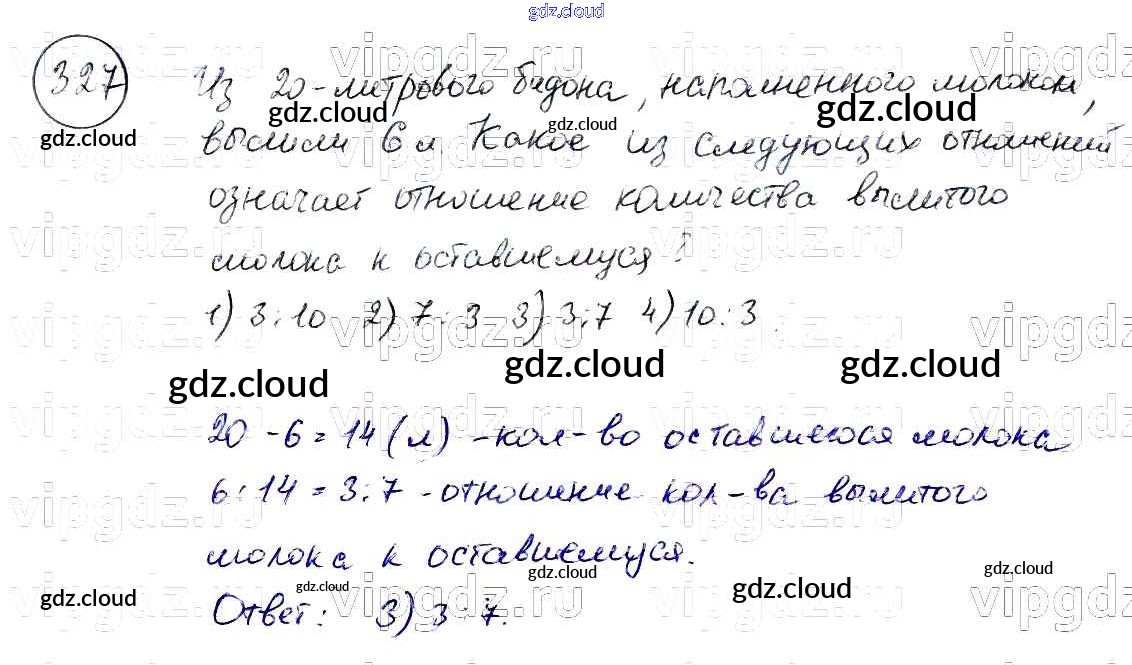 gdz.cloud
327 Из 20-литрового бидона, наполненного молоком,
вылили 6 л. Какое из следующих отношений
означает отношение количества вылитого
молока к оставшемуся?
1) 3:10 2) 7:3 3) 3:7 4) 10:3.
20 - 6 = 14 (л) - кол-во оставшегося молока
6:14 = 3:7 - отношение кол-ва вылитого
молока к оставшемуся.
Ответ: 3) 3:7.
gdz.cloud gdz.cloud gdz.cloud
gdz.cloud gdz.cloud gdz.cloud
gdz.cloud gdz.cloud gdz.cloud gdz.cloud gdz.cloud
vipgdz.ru vipgdz.ru vipgdz.ru vipgdz
vipgdz.ru vipgdz.ru vipgdz.ru vipgdz